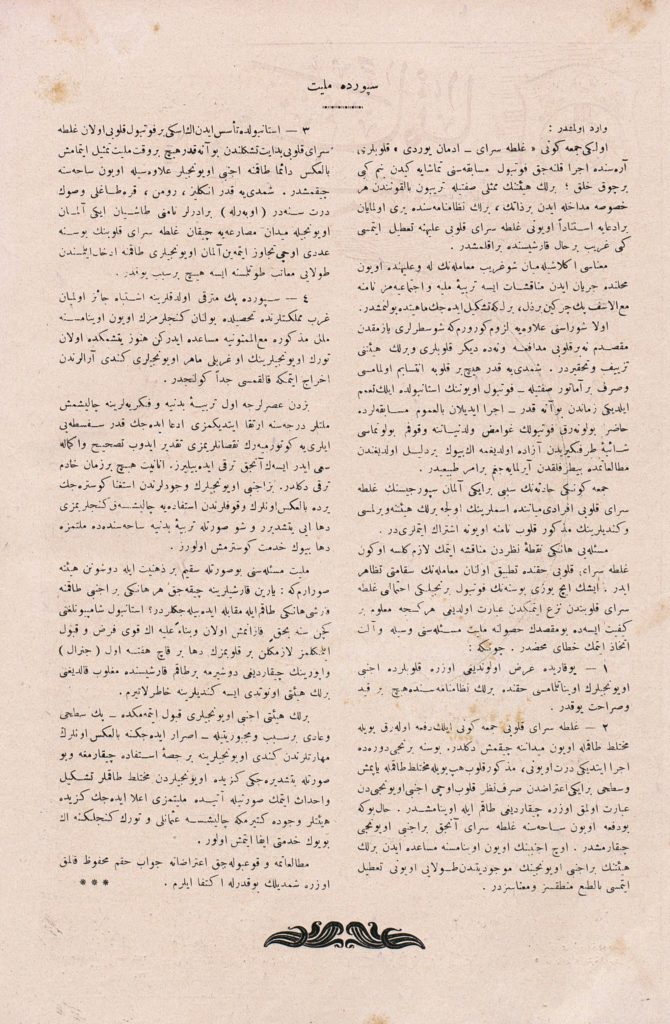 سپورده ملیت
وارد اولمشدر :
اولكی جمعه كونی « غلطه سرای ـ ادمان یوردی » قلوبلری
آره‌سنده اجرا قلنه‌جق فوتبول مسابقه‌سنی تماشایه كیدن بنم كبی
برچوق خلق ؛ برلك هیئتنك ممثلی صفتیله تریبون بالقونندن هر
خصوصه مداخله ایدن برذاتك ، برلك نظامنامه‌سنده یری اولمایان
برادعایه استناداً اویونی غلطه سرای قلوبی علیهنه تعطیل ایتمسی
كبی غریب برحال قارشیسنده براقلمشدر .
معناسی اكلاشیله‌میان شو غریب معامله‌نك له وعلیهنده اویون
محلنده جریان ایدن مناقشات ایسه تربیهٔ ملیه و اجتماعیه‌مز نامنه
مع‌الاسف پك چركین برذل ، برلكه تشكیل ایده‌جك ماهیتده بولنمشدر.
اولا شوراسنی علاوه‌یه لزوم كورورم‌كه شوسطرلری یازمقدن
مقصدم نه‌برقلوبی مدافعه ونه‌ده دیكر قلوبلری وبرلك هیئتنی
تزییف وتحقیردر . شمدی‌یه قدر هیچ‌بر قلوبه انتسابم اولمامسی
وصرف برآماتور صفتیله ـ فوتبول اویوننك استانبولده ایلك‌تعمم
ایلدیكی زماندن بوآنه قدر ـ اجرا ایدیلان بالعموم مسابقه‌لرده
حاضر بولونه‌رق فوتبولك غوامض ولدنیاتنه وقوفم بولونماسی
شائبهٔ طرفكیریدن آزاده اولدیغمه اك‌بیوك بردلیل اولدیغندن
مطالعاتمده بیطرفلقدن آیرلمایه‌جغم برامر طبیعیدر .
جمعه كونكی حادثه‌نك سببی برایكی آلمان سپورجیسنك غلطه
سرای قلوبی افرادی میاننده اسملرینك اولجه برلك هیئتنه ویرلمسی
وكندیلرینك مذكور قلوب نامنه اویونه اشتراك ایتملری‌در .
مسئله‌یی هانكی نقطهٔ نظردن مناقشه ایتمك لازم كلسه اوكون
غلطه سرای قلوبی حقنده تطبیق اولنان معامله‌نك سقامتی تظاهر
ایدر . ایشك ایچ یوزی بوسنه‌نك فوتبول برنجیلكی احتمالی غلطه
سرای قلوبندن نزع ایتمكدن عبارت اولدیغی هركسجه معلوم بر
كیفیت ایسه‌ده بومقصدك حصولنه ملیت مسئله‌سنی وسیله و آلت
اتخاذ ایتمك خطای محضدر . چونكه :
١ — یوقاریده عرض اولوندیغی اوزره قلوبلرده اجنبی
اویونجیلرك اویناتلمامسی حقنده برلك نظامنامه‌سنده هیچ بر قید
وصراحت یوقدر .
٢ — غلطه سرای قلوبی جمعه كونی ایلك‌دفعه اوله‌رق بویله
مختلط طاقمله اویون میداننه چیقمش دكلدر. بوسنه برنجی دوره‌ده
اجرا ایتدیكی درت اویونی ، مذكور قلوب هپ بویله مختلط طاقمله یاپمش
وسطحی برایكی اعتراضدن صرف نظر قلوب اوچی اجنبی اویونجی‌دن
عبارت اولمق اوزره چیقاردیغی طاقم ایله اوینامشدر . حال‌بوكه
بودفعه اویون ساحه‌سنه غلطه سرای آنجق براجنبی اویونجی
چیقارمشدر . اوچ اجنبینك اویون اوینامسنه مساعده ایدن برلك
هیئتنك براجنبی اویونجینك موجودیتندن طولایی اویونی تعطیل
ایتمسی بالطبع منطقسز ومعناسزدر .
٣ — استانبولده تأسس ایدن اك‌اسكی برفوتبول قلوبی اولان غلطه
سرای قلوبی بدایت تشكلندن بوآنه قدر هیچ بروقت ملیت تمثیل ایتمامش
بالعكس دائما طاقمنه اجنبی اویونجیلر علاوه‌سیله اویون ساحه‌سنه
چیقمشدر . شمدی‌یه قدر انكلیز ، رومن ، قره‌طاغلی وصوك
درت سنه‌در ( اوبه‌رله ) برادرلر نامنی طاشییان ایكی آلمان
اویونجیله میدان مصارعه‌یه چیقان غلطه سرای قلوبنك بوسنه
عددی اوچی تجاوز ایتمه‌ین آلمان اویونجیلری طاقمنه ادخال ایتمسندن
طولایی معاتب طوتلمسنه ایسه هیچ برسبب یوقدر .
٤ — سپورده پك مترقی اولدقلرینه اشتباه جائز اولمیان
غرب مملكتلرنده تحصیلده بولنان كنجلرمزك اویون اوینامسنه
ملل مذكوره مع‌الممنونیه مساعده ایدركن هنوز یتشمكده اولان
تورك اویونجیلرینك او غربلی ماهر اویونجیلری كندی آرالرندن
اخراج ایتمكه قالقمسی جداً كولنجدر .
بزدن عصرلرجه اول تربیهٔ بدنیه و فكریه‌لرینه چالیشمش
ملتلر درجه‌سنه ارتقا ایتدیكمزی ادعا ایده‌جك قدر سفسطه‌یی
ایلری‌یه كوتورمیه‌رك نقصانلریمزی تقدیر ایدوب تصحیح واكماله
سعی ایدر ایسه‌ك آنجق ترقی ایده‌بیلیرز. انانیت هیچ برزمان خادم
ترقی دكلدر. بزاجنبی اویونجیلرك وجودلرندن استغنا كوستره‌جك
یرده بالعكس اونلرك وقوفلرندن استفاده‌یه چالیشه‌رق كنجلریمزی
دها ایی یتشدیرر و شو صورتله تربیهٔ بدنیه ساحه‌سنده‌ده ملتمزه
دها بیوك خدمت كوسترمش اولورز .
ملیت مسئله‌سنی بوصورتله سقیم بر ذهنیت ایله دوشونن هیئته
صورارم‌كه : یارین قارشیلرینه چیقه‌جق هر هانكی بر اجنبی طاقمنه
قارشی هانكی طاقم‌ایله مقابله ایده‌بیله‌جكلردر؟ استانبول شامپیونلغنی
كچن سنه بحق قازانمش اولان وبناءً علیه اك قوی فرض و قبول
ایتمكلكمز لازمكلن بر قلوبمزك دها بر قاچ هفته اول ( جنرال )
واپورینك چیقاردیغی دوشیرمه برطاقم قارشیسنده مغلوب قالدیغنی
برلك هیئتی اونوتدی ایسه كندیلرینه خاطرلاتیرم .
برلك هیئتی اجنبی اویونجیلری قبول ایتمه‌مكده ـ پك سطحی
وعادی برسبب ومجبوریتله ـ اصرار ایده‌جكنه بالعكس اونلرك
مهارتلرندن كندی اویونجیلرینه بر حصهٔ استفاده چیقارمغه وبو
صورتله یتشدیره‌جكی كزیده اویونجیلردن مختلط طاقملر تشكیل
واحداث ایتمك صورتیله آتیده ملیتمزی اعلا ایده‌جك كزیده
هیئتلر وجوده كتیرمكه چالیشسه عثمانلی و تورك كنجلكنه اك
بویوك خدمتی ایفا ایتمش اولور .
مطالعاتمه و قوعبوله‌جق اعتراضاته جواب حقم محفوظ قالمق
اوزره شمدیلك بوقدرله اكتفا ایلرم . * * *